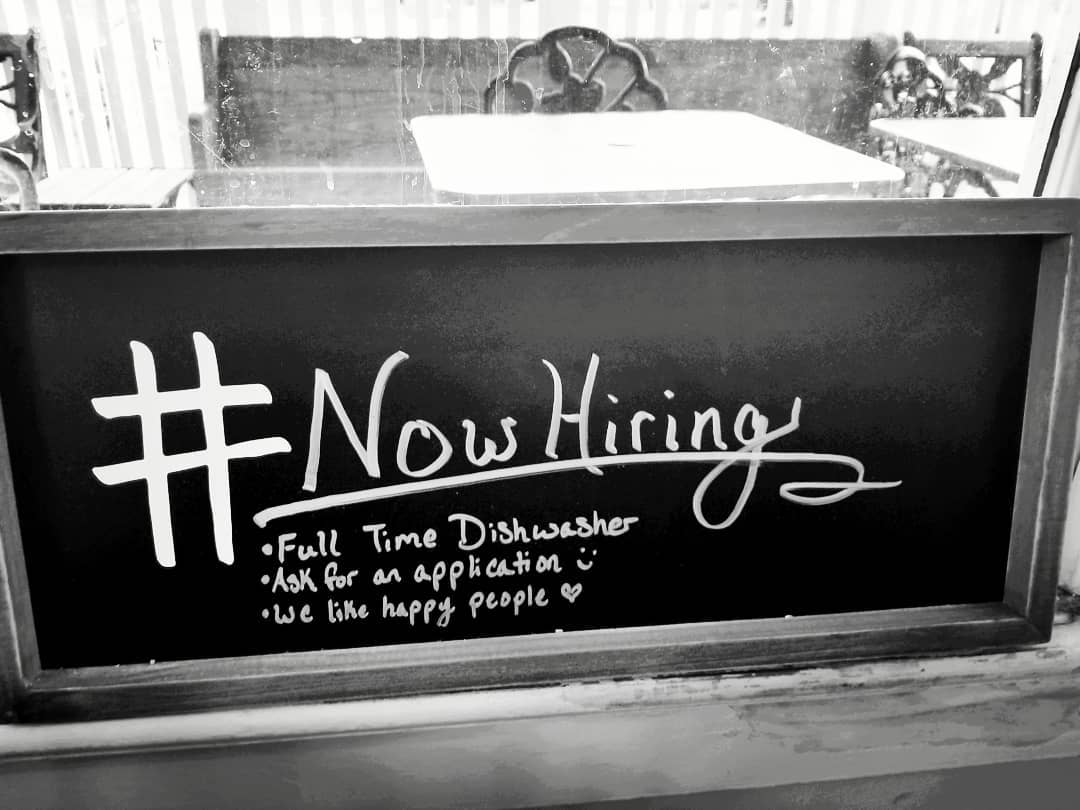 #NowHiring
•Full Time Dishwasher
•Ask for an application :)
•We like happy people ♥